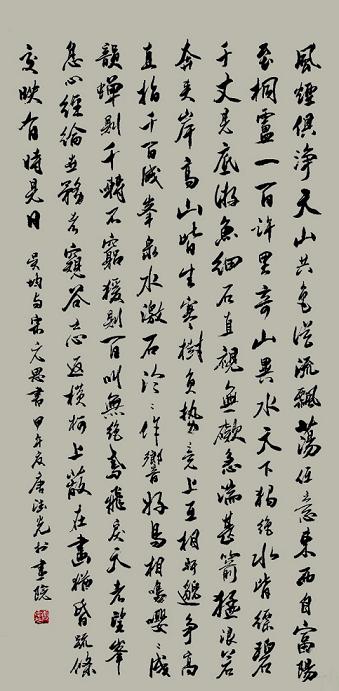 風煙俱淨天山共色從流飄蕩任意東西自富陽
至桐廬一百許里奇山異水天下獨絕水皆縹碧
千丈見底游魚細石直視無礙急湍甚箭猛浪若
奔夹岸高山皆生寒樹負勢競上互相軒邈爭高
直指千百成峯泉水激石泠〻作響好鳥相鳴嚶〻成
韻蟬則千轉不窮猿則百叫無絕鳶飛戾天者望峯
息心經綸世務者窺谷忘返橫柯上蔽在畫猶昏疏條
交映有時見日 吳均与宋元思書 甲午夏唐法光